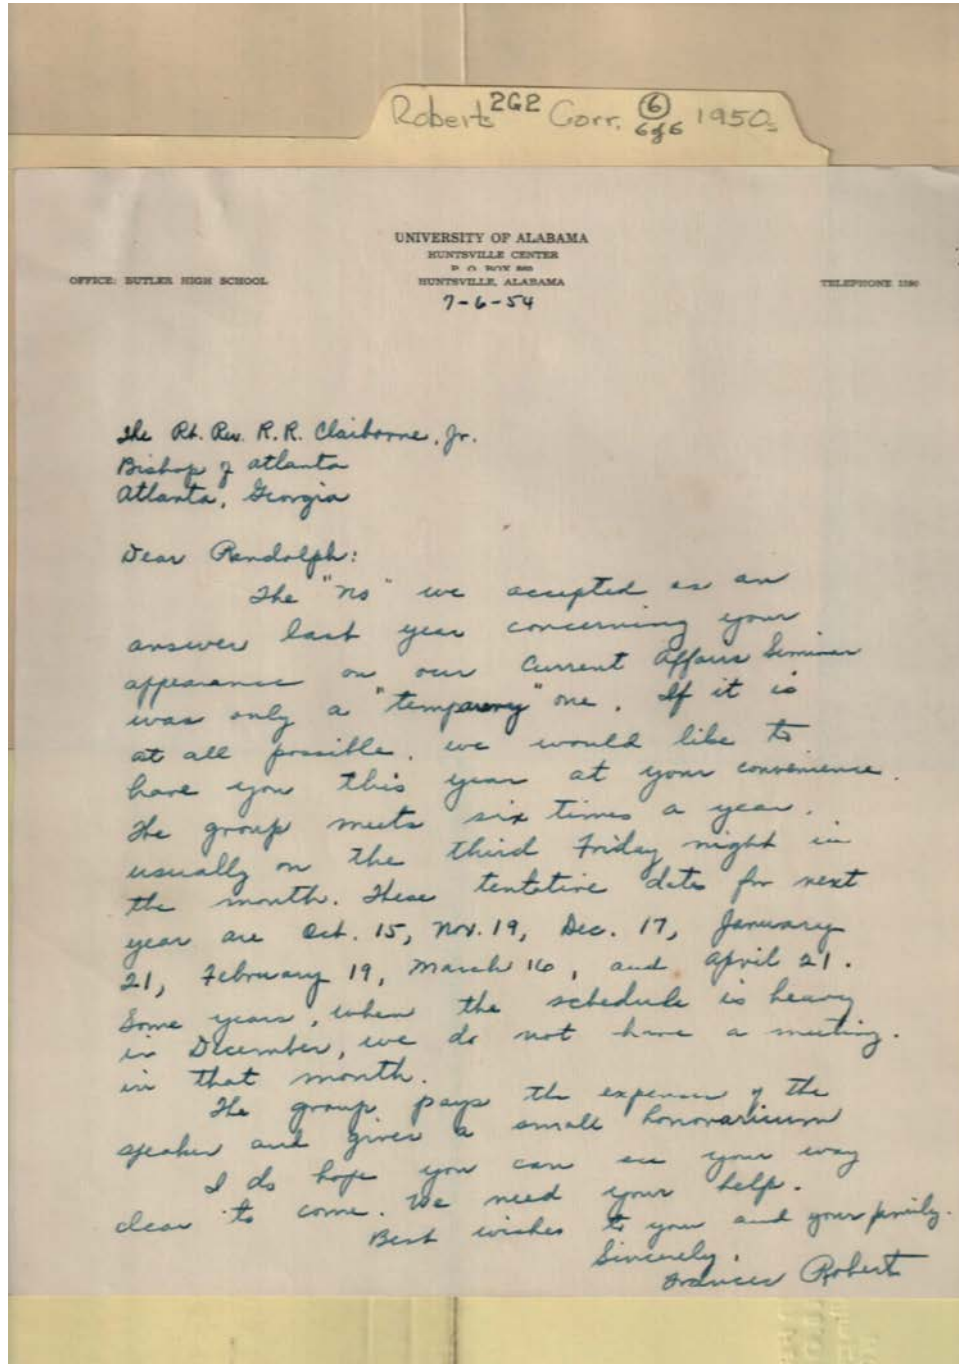 Roberts 2G2 Corr. 6 6 of 6 1950s
UNIVERSITY OF ALABAMA
HUNTSVILLE CENTER
P. O. BOX
OFFICE: BUTLER HIGH SCHOOL HUNTSVILLE, ALABAMA TELEPHONE
7-6-54
The Rt. Rev. R. R. Claiborne, Jr.
Bishop of Atlanta
Atlanta, Georgia
Dear Randolph:
The "No" we accepted as an
answer last year concerning your
appearance on our Current Affairs Seminar
was only a "temporary" one. If it is
at all possible, we would like to
have you this year at your convenience.
The group meets six times a year,
usually on the third Friday night in
the month. These tentative dates for next
year are Oct. 15, Nov. 19, Dec. 17, January
21, February 19, March 16, and April 21.
Some years, when the schedule is heavy
in December, we do not have a meeting
in that month.
The group pays the expenses of the
speaker and gives a small honorarium
I do hope you can see your way
clear to come. We need your help.
Best wishes to you and your family.
Sincerely,
Frances Robert